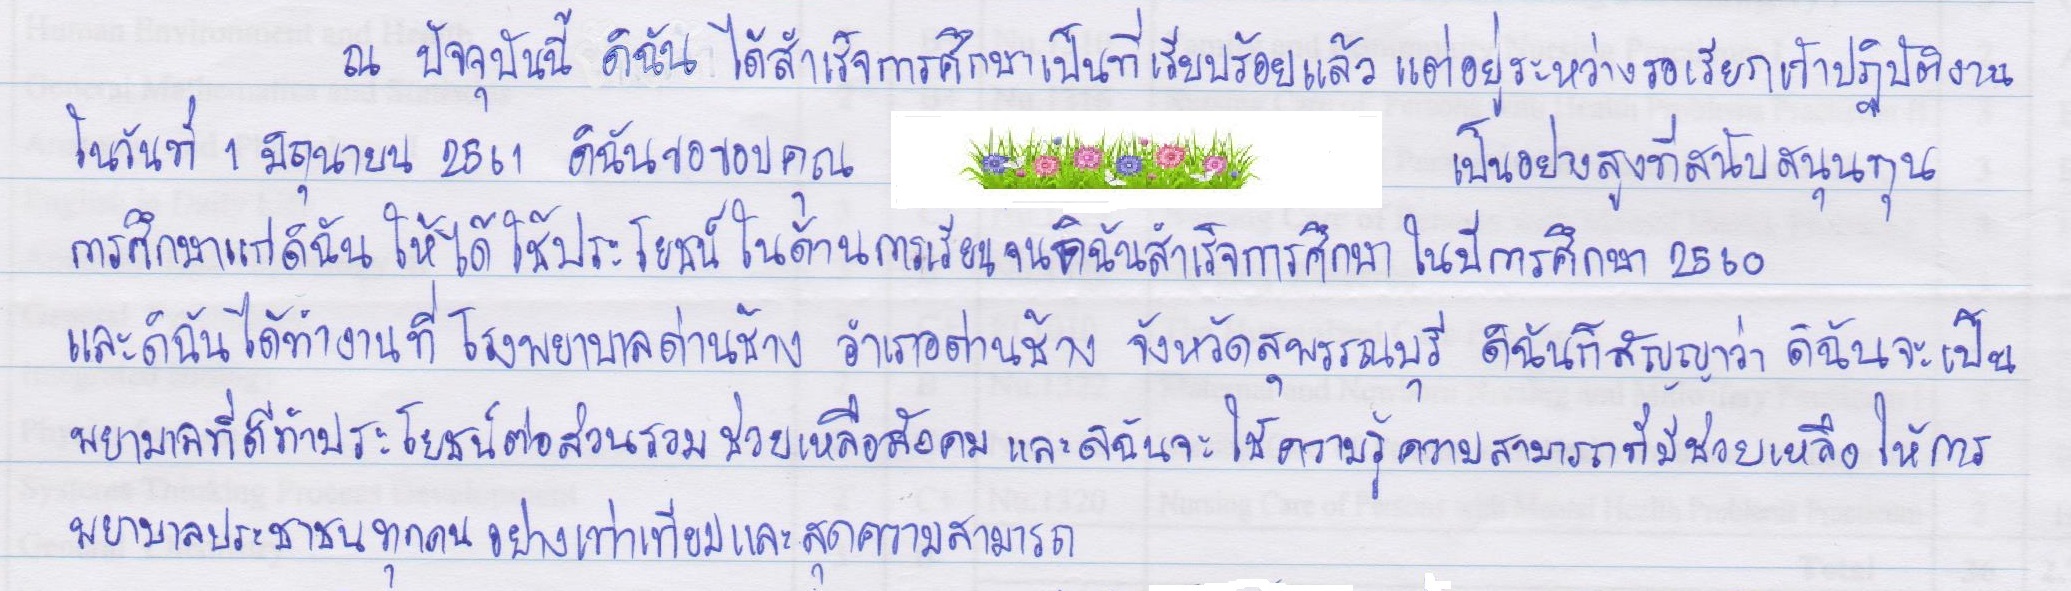 ณ ปัจจุบันนี้ ดิฉัน ได้สำเร็จการศึกษาเป็นที่เรียบร้อยแล้ว แต่อยู่ระหว่างรอเรียกเข้าปฏิบัติงาน
ในวันที่ 1 มิถุนายน 2561 ดิฉันขอขอบคุณ เป็นอย่างสูงที่สนับสนุนทุน
การศึกษาแก่ดิฉัน ให้ได้ใช้ประโยชน์ในด้านการเรียนจนดิฉันสำเร็จการศึกษา ในปีการศึกษา 2560
และดิฉันได้ทำงานที่ โรงพยาบาลด่านช้าง อำเภอด่านช้าง จังหวัดสุพรรณบุรี ดิฉันก็สัญญาว่า ดิฉันจะเป็น
พยาบาลที่ดีทำประโยชน์ต่อส่วนรวม ช่วยเหลือสังคม และดิฉันจะใช้ความรู้ความสามารถที่มีช่วยเหลือ ให้การ
พยาบาลประชาชนทุกคน อย่างเท่าเทียมและสุดความสามารถ